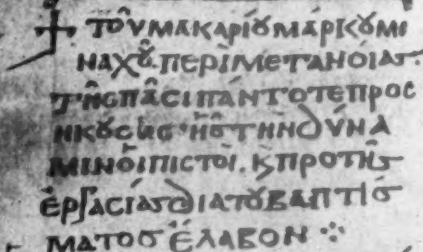 + τοῦ μακαρίου μάρκου μο
ναχοῦ. περὶ μετανοίας.
τῆς πᾶσι πάντοτε προσ
ηκούσης· ἧς τὴν δύνα
μιν οἱ πιστοὶ, ϗ πρὸ τῆς
ἐργασίας διὰ τοῦ βαπτίσ
ματος ἔλαβον ⁘